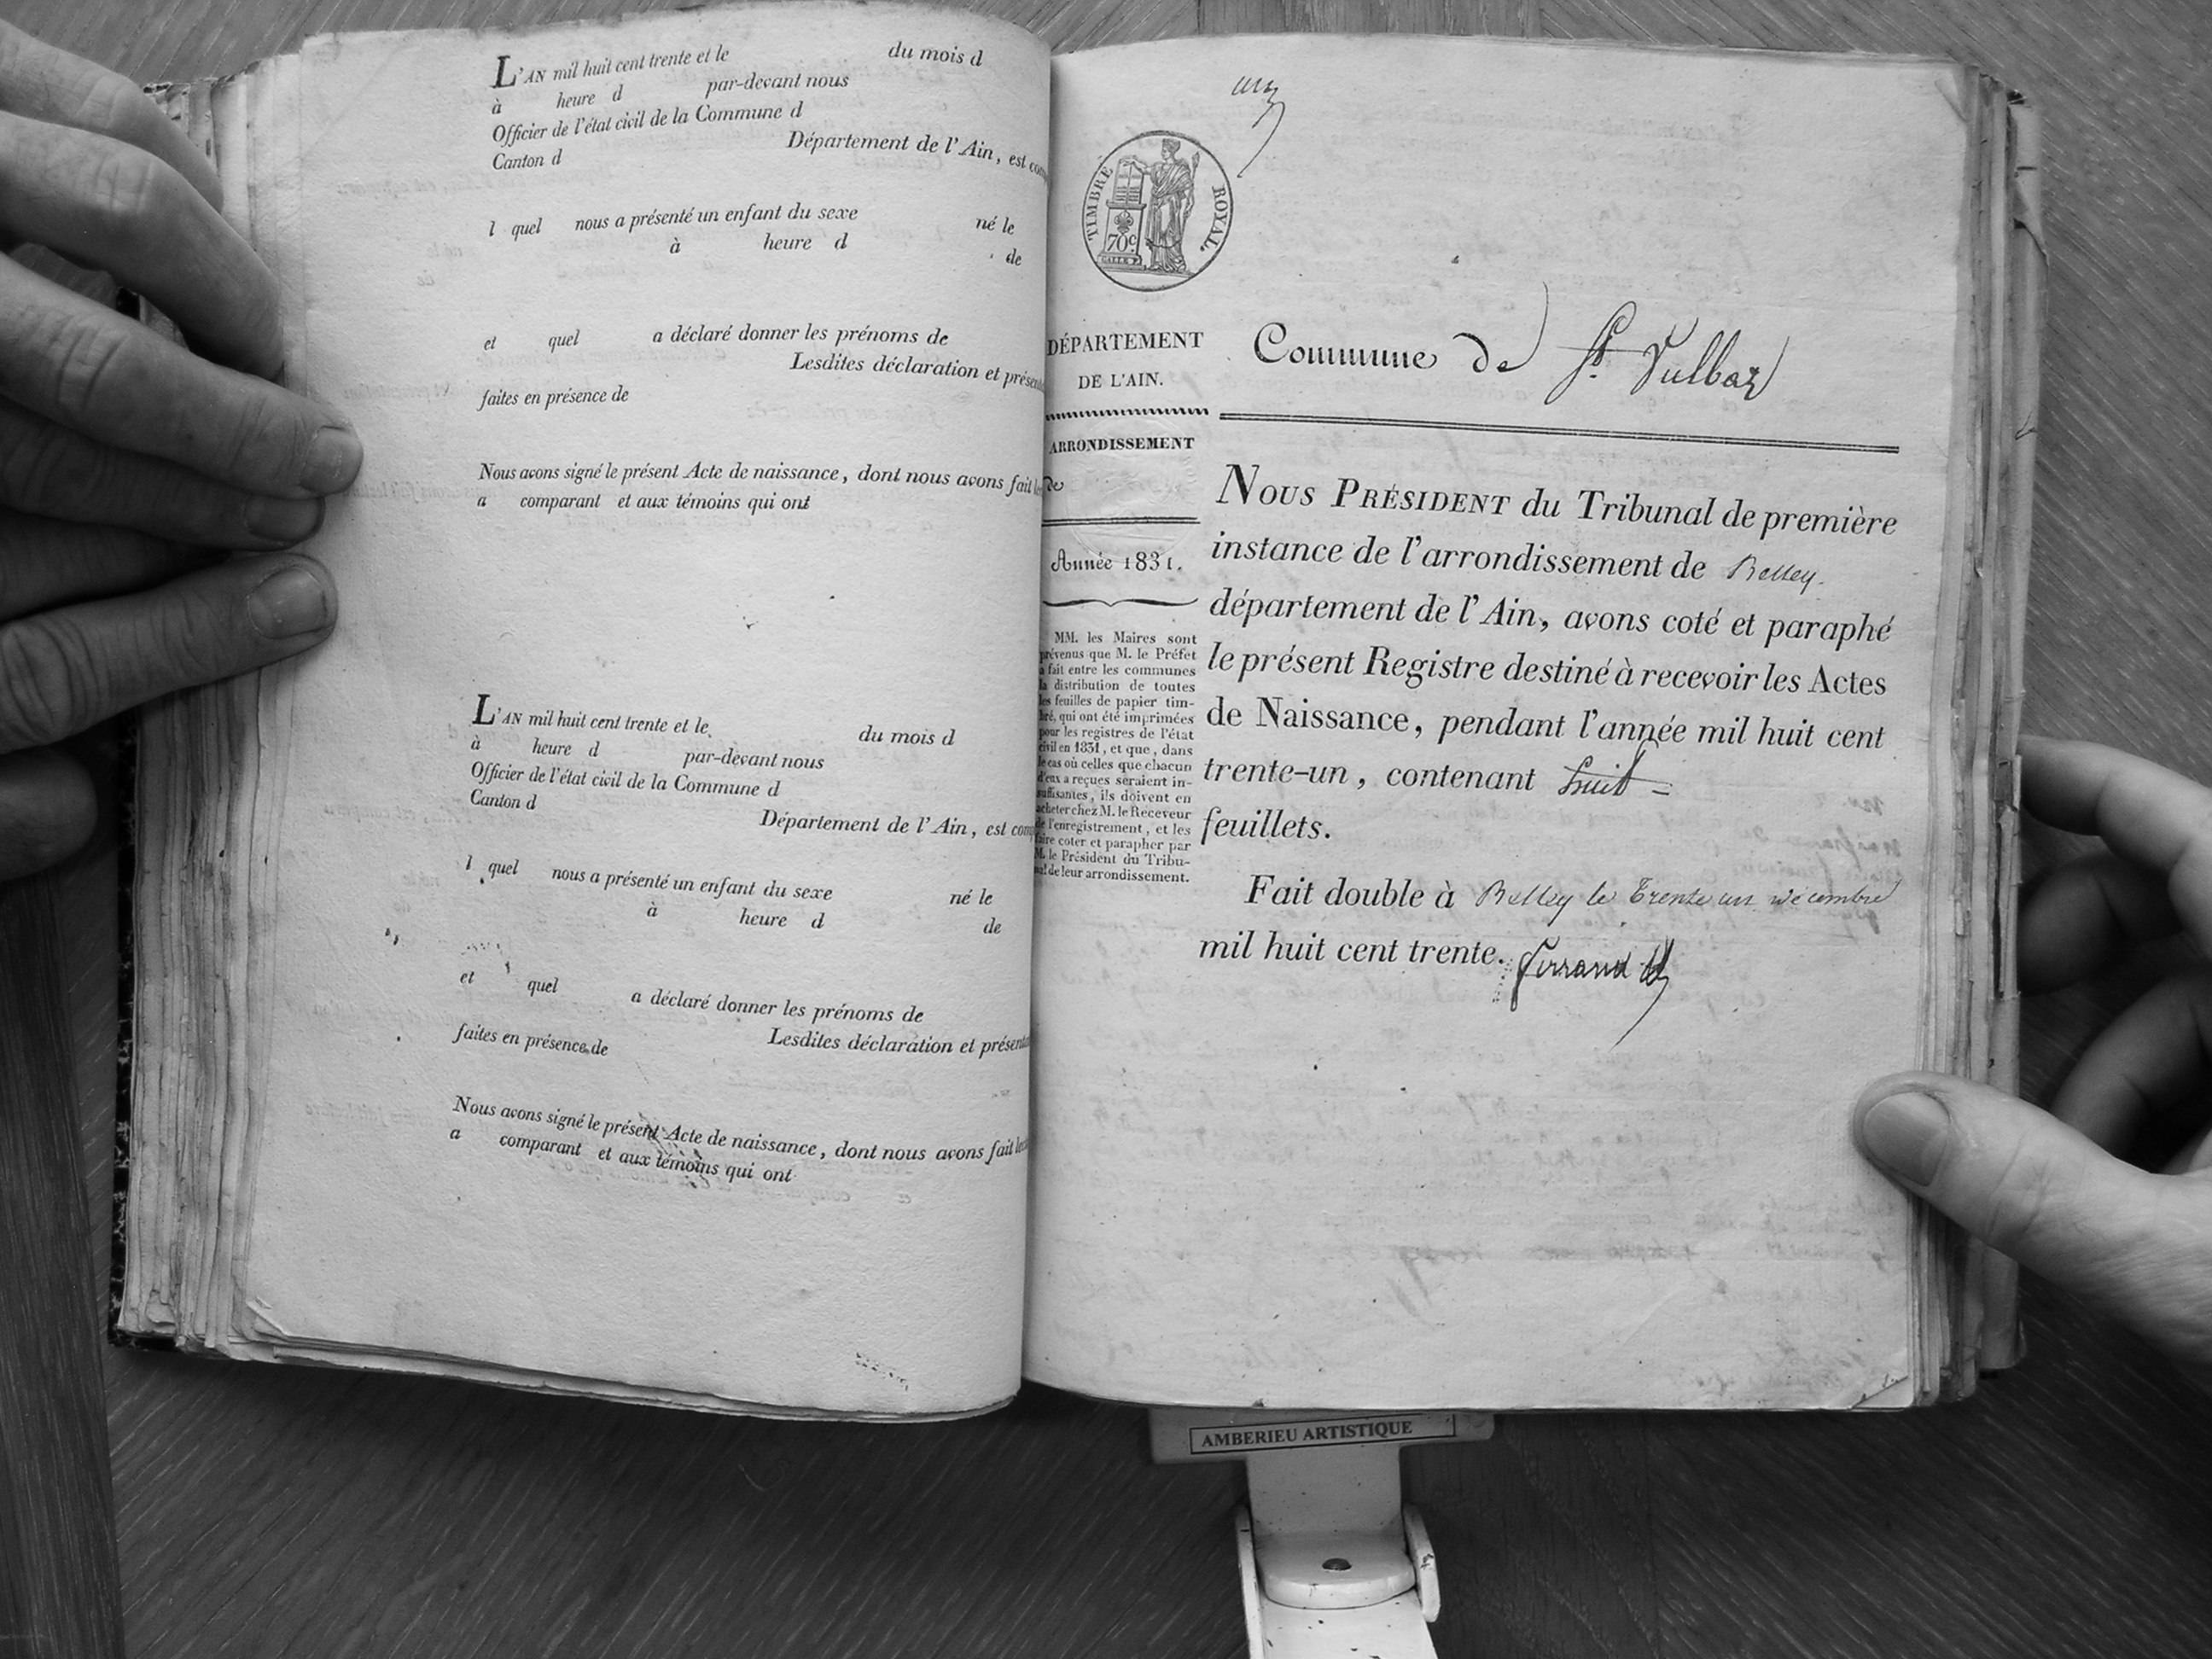 L'AN mil huit cent trente et le du mois d
à heure d par-devant nous
Officier de l'état civil de la Commune d
Canton d Département de l'Ain, est
l quel nous a présenté un enfant du sexe né le
à heure d de
et quel a déclaré donner les prénoms de
Lesdites déclaration et
faites en présence de
Nous avons signé le présent Acte de naissance, dont nous avons fait
a comparant et aux témoins qui ont
L'AN mil huit cent trente et le du mois d
à heure d par-devant nous
Officier de l'état civil de la Commune d
Canton d
Département de l'Ain, est
l quel nous a présenté un enfant du sexe né le
à heure d de
et quel a déclaré donner les prénoms de
Lesdites déclaration et
faites en présence de
Nous avons signé le présent Acte de naissance, dont nous avons fait
a comparant et aux témoins qui ont
TIMBRE ROYAL.
70c
DÉPARTEMENT
DE L'AIN.
ARRONDISSEMENT
de
Année 1831.
MM. les Maires sont
prévenus que M. le Préfet
a fait entre les communes
la distribution de toutes
les feuilles de papier tim-
bré, qui ont été imprimées
pour les registres de l'état
civil en 1831, et que, dans
le cas où celles que chacun
d'eux a reçues seraient in-
suffisantes, ils doivent en
acheter chez M. le Receveur
de l'enregistrement, et les
faire coter et parapher par
M. le Président du Tribu-
nal de leur arrondissement.
Commune de St. Vulbaz
NOUS PRÉSIDENT du Tribunal de première
instance de l'arrondissement de Belley.
département de l'Ain, avons coté et paraphé
le présent Registre destiné à recevoir les Actes
de Naissance, pendant l'année mil huit cent
trente-un, contenant huit
feuillets.
Fait double à Belley le trente un décembre
mil huit cent trente.
AMBERIEU ARTISTIQUE